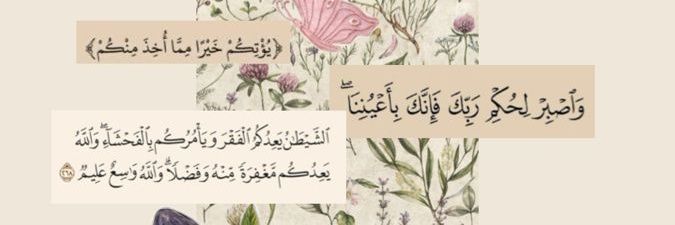 ﴿يُؤْتِكُمْ خَيْرًا مِمَّا أُخِذَ مِنْكُمْ﴾
وَٱصْبِرْ لِحُكْمِ رَبِّكَ فَإِنَّكَ بِأَعْيُنِنَا ۖ
ٱلشَّيْطَٰنُ يَعِدُكُمُ ٱلْفَقْرَ وَيَأْمُرُكُم بِٱلْفَحْشَآءِ ۖ وَٱللَّهُ
يَعِدُكُم مَّغْفِرَةً مِّنْهُ وَفَضْلًا ۗ وَٱللَّهُ وَٰسِعٌ عَلِيمٌ ٢٦٨